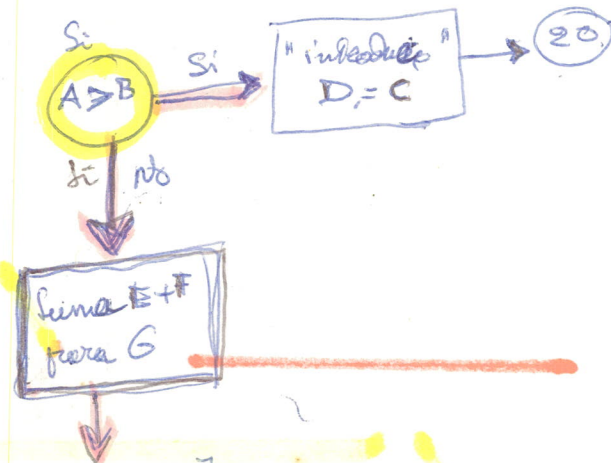 Si
A > B
Si
"introducio"
D, = C
20
Si No
Suma E+F
para G